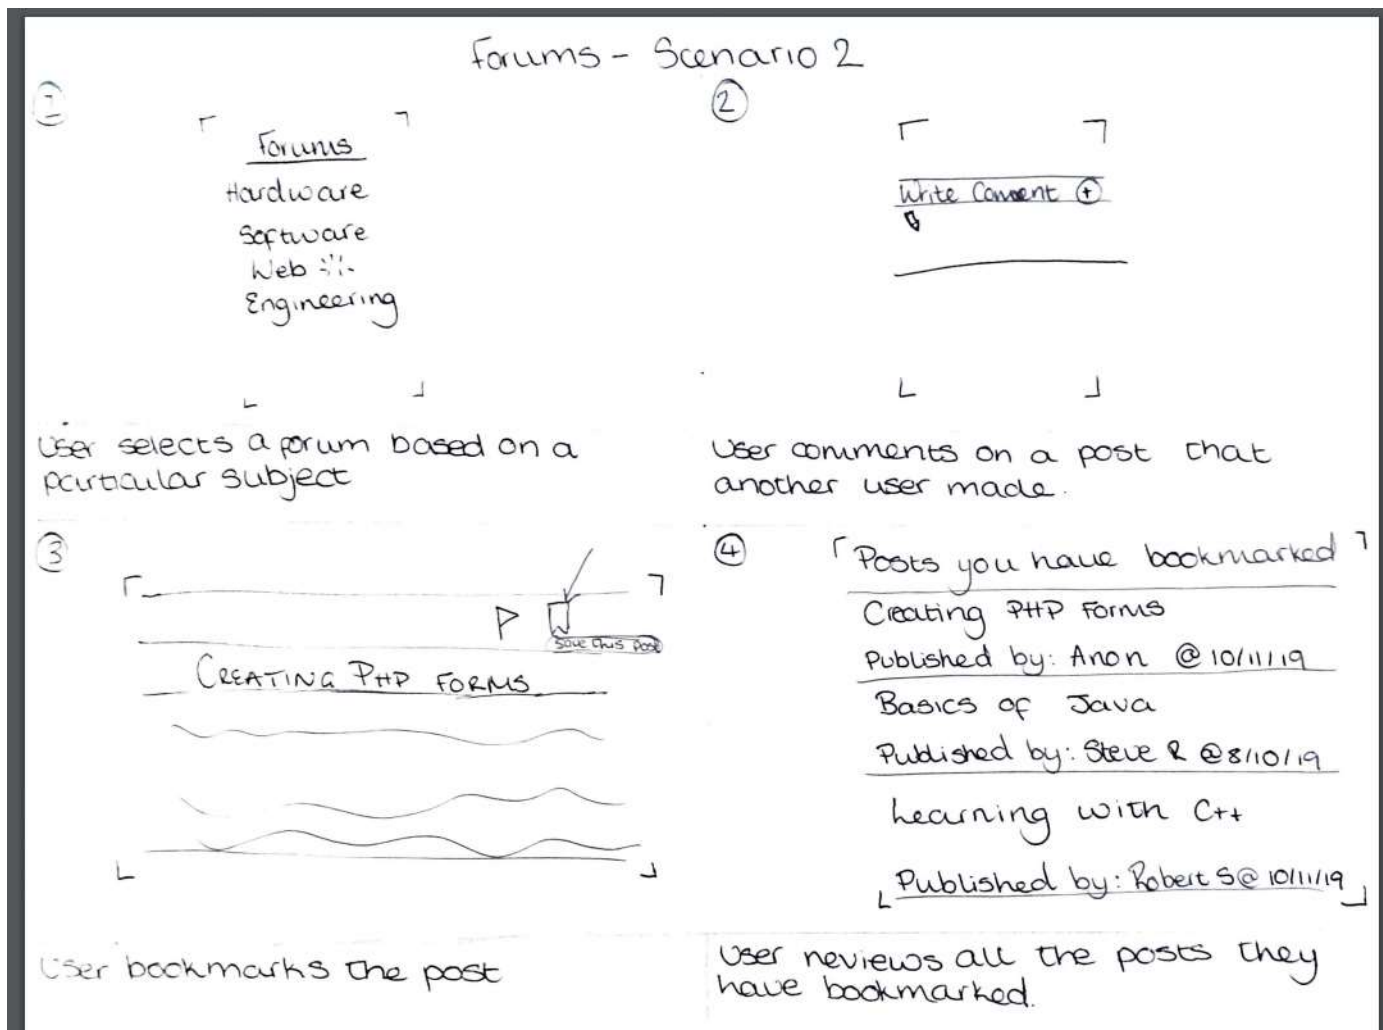 Forums - Scenario 2
1
Forums
Hardware
Software
Web
Engineering
User selects a forum based on a
particular subject
2
Write Comment +
User comments on a post that
another user made.
3
Save this post
CREATING PHP FORMS
User bookmarks the post
4
Posts you have bookmarked
Creating PHP Forms
Published by: Anon @ 10/11/19
Basics of Java
Published by: Steve R @ 8/10/19
Learning with C++
Published by: Robert S @ 10/11/19
User reviews all the posts they
have bookmarked.